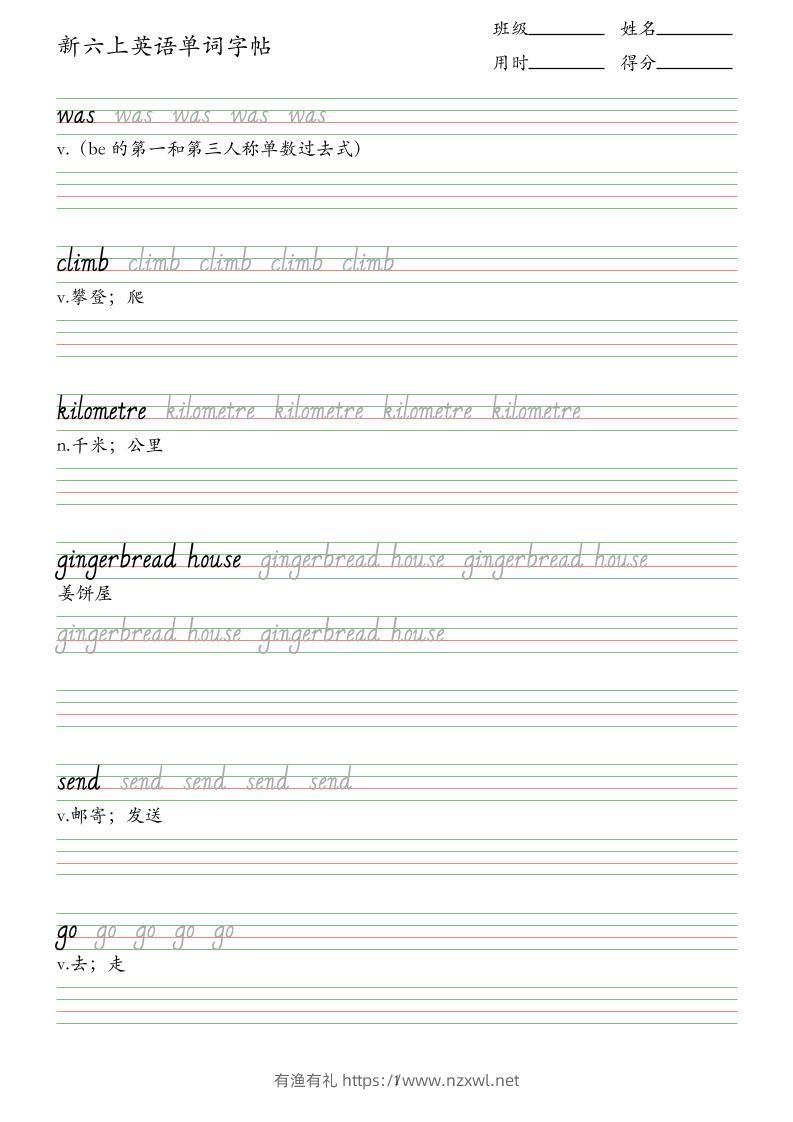 新六上英语单词字帖
班级 姓名
用时 得分
was was was was was
v.（be 的第一和第三人称单数过去式）
climb climb climb climb climb
v.攀登；爬
kilometre kilometre kilometre kilometre kilometre
n.千米；公里
gingerbread house gingerbread house gingerbread house
姜饼屋
gingerbread house gingerbread house
send send send send send
v.邮寄；发送
go go go go go
v.去；走
有渔有礼 https://www.nzxwl.net